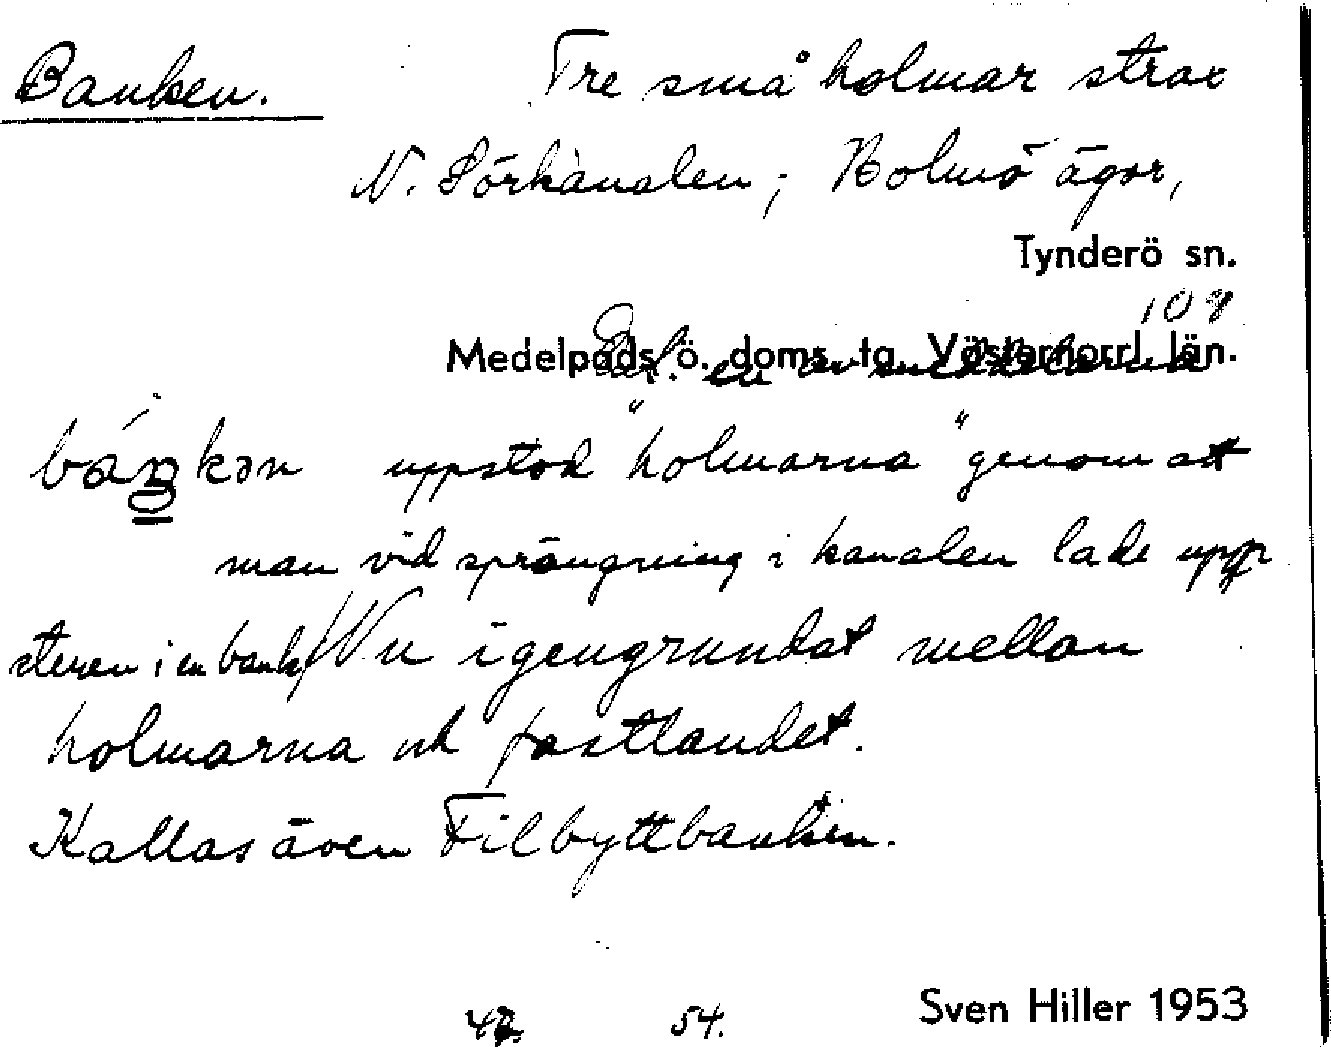 Banken. Tre små holmar strax
N. Sörkanalen; Bolmö ägor,
Tynderö sn.
109
Medelpads ö. doms. tg. Västernorrl. län.
en av
báŋkən uppstod "holmarna" genom att
man vid sprängning i kanalen lade upp
stenen i en bank/ Nu igengrundat mellan
holmarna och fastlandet.
Kallas även Filbyttbanken.
42. 54. Sven Hiller 1953